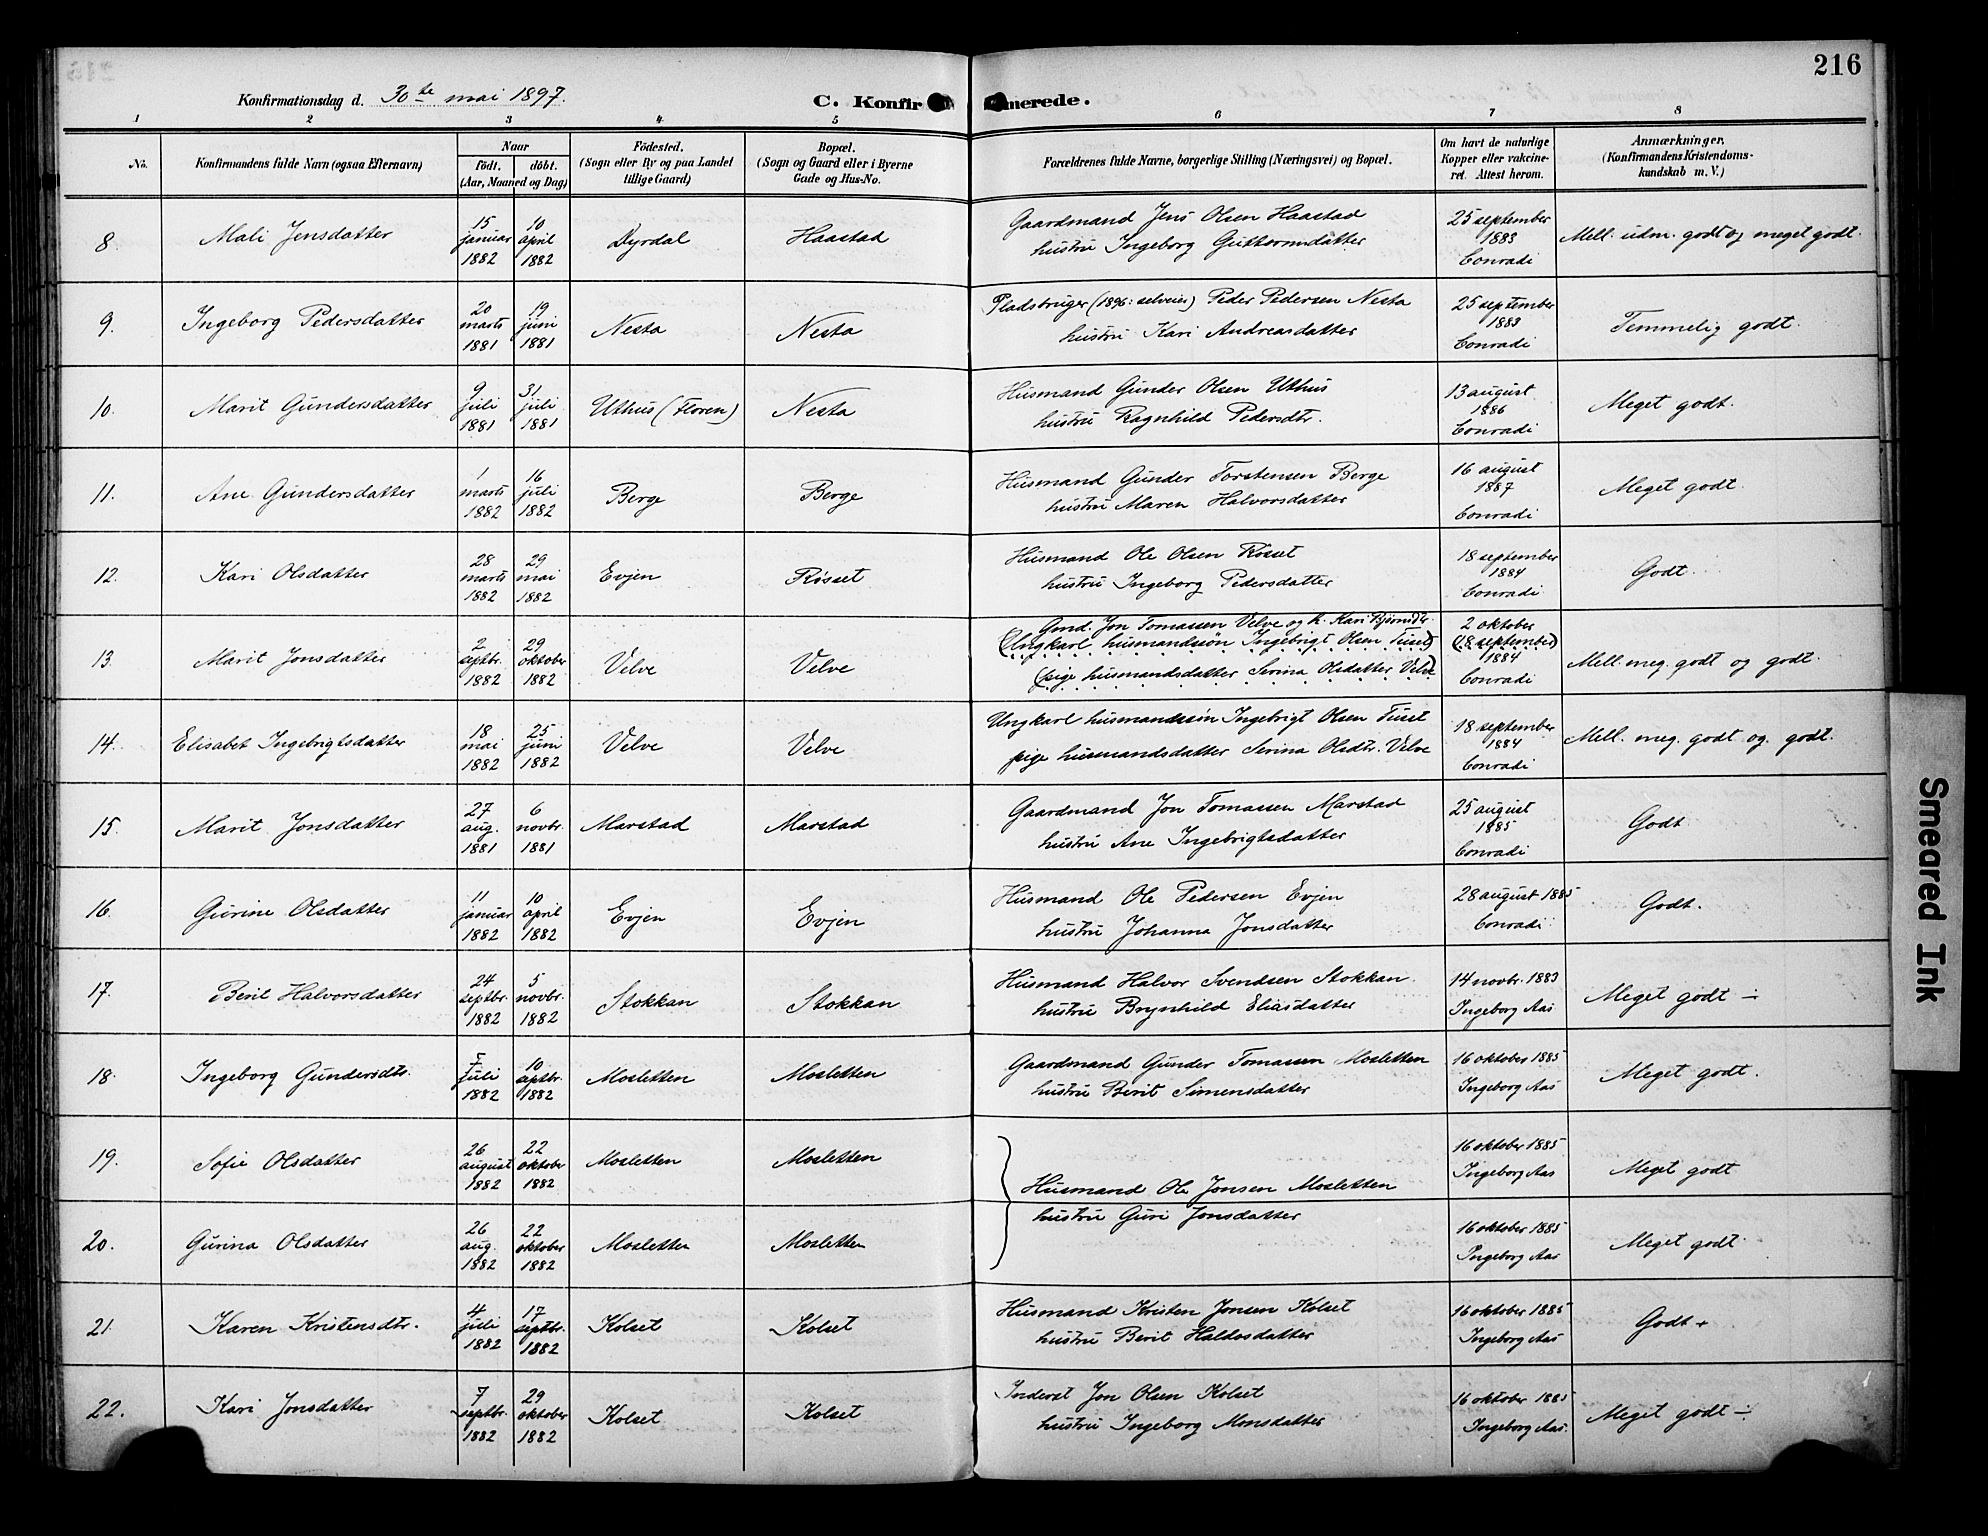 216
Konfirmationsdag d. 30te mai 1897.
C. Konfirmerede.
1 2 3 4 5 6 7 8
No.
Konfirmandens fulde Navn (ogsaa Efternavn)
Naar
født. døbt.
(Aar, Maaned og Dag)
Födested.
(Sogn eller By og paa Landet
tillige Gaard)
Bopæl.
(Sogn og Gaard eller i Byerne
Gade og Hus-No.
Forældrenes fulde Navne, borgerlige Stilling (Næringsvei) og Bopæl.
Om havt de naturlige
Kopper eller vakcine-
ret. Attest herom.
Anmærkninger.
(Konfirmandens Kristendoms-
kundskab m. V.)
8. Mali Jensdatter
15 januar 1882
10 april 1882
Dyrdal
Haastad
Gaardmand Jens Olsen Haastad
hustru Ingeborg Guttormsdatter
25 september
1883
Conradi
Mell. udm. godt og meget godt.
9. Ingeborg Pedersdatter
20 marts 1881
19 juni 1881
Nesta
Nesta
Pladsbruger (1896: selveier) Peder Pedersen Nesta
hustru Kari Andreasdatter
25 september
1883
Conradi
Temmelig godt.
10. Marit Gundersdatter
9 juli 1881
31 juli 1881
Uthus (Floren)
Nesta
Husmand Gunder Olsen Uthus
hustru Ragnhild Pedersdtr.
13 august
1886
Conradi
Meget godt.
11. Ane Gundersdatter
1 marts 1882
16 juli 1882
Berge
Berge
Husmand Gunder Torstensen Berge
hustru Maren Halvorsdatter
16 august
1887
Conradi
Meget godt.
12. Kari Olsdatter
28 marts 1882
29 mai 1882
Evjen
Røsset
Husmand Ole Olsen Røsset
hustru Ingeborg Pedersdatter
18 september
1884
Conradi
Godt.
13. Marit Jonsdatter
2 septbr. 1882
29 oktober 1882
Velve
Velve
Gmd. Jon Tomassen Velve og h. Kari Bjørnsdtr.
(Ungkarl husmandssøn Ingebrigt Olsen Tuset)
(pige husmandsdatter Serina Olsdatter Velve)
2 oktober
(18 september)
1884
Conradi
Mell. meg. godt og godt.
14. Elisabet Ingebrigtsdatter
18 mai 1882
25 juni 1882
Velve
Velve
Ungkarl husmandssøn Ingebrigt Olsen Tuset
pige husmandsdatter Serina Olsdtr. Velve
18 september
1884
Conradi
Mell. meg. godt og godt.
15. Marit Jonsdatter
27 aug. 1881
6 novbr. 1881
Marstad
Marstad
Gaardmand Jon Tomassen Marstad
hustru Ane Ingebrigtsdatter
25 august
1885
Conradi
Godt
16. Gurine Olsdatter
11 januar 1882
10 april 1882
Evjen
Evjen
Husmand Ole Pedersen Evjen
hustru Johanna Jonsdatter
28 august 1885
Conradi
Godt.
17. Berit Halvorsdatter
24 septbr. 1882
5 novbr. 1882
Stokkan
Stokkan
Husmand Halvor Svendsen Stokkan
hustru Brynhild Eliasdatter
14 novbr. 1883
Ingeborg Aas
Meget godt ÷
18. Ingeborg Gundersdtr.
5 juli 1882
10 septbr. 1882
Mosletten
Mosletten
Gaardmand Gunder Tomassen Mosletten
hustru Berit Simensdatter
16 oktober 1885
Ingeborg Aas
Meget godt.
19. Sofie Olsdatter
26 august 1882
22 oktober 1882
Mosletten
Mosletten
Husmand Ole Jonsen Mosletten
hustru Guri Jonsdatter
16 oktober 1885
Ingeborg Aas
Meget godt
20. Gurina Olsdatter
26 aug. 1882
22 oktober 1882
Mosletten
Mosletten
16 oktober 1885
Ingeborg Aas
Meget godt
21. Karen Kristensdtr.
4 juli 1882
17 septbr. 1882
Kolset
Kolset
Husmand Kristen Jonsen Kolset
hustru Berit Haldosdatter
16 oktober 1885
Ingeborg Aas
Godt +
22. Kari Jonsdatter
7 septbr. 1882
29 oktober 1882
Kolset
Kolset
Inderst Jon Olsen Kolset
hustru Ingeborg Monsdatter
16 oktober 1885
Ingeborg Aas.
Meget godt ÷
Smeared Ink